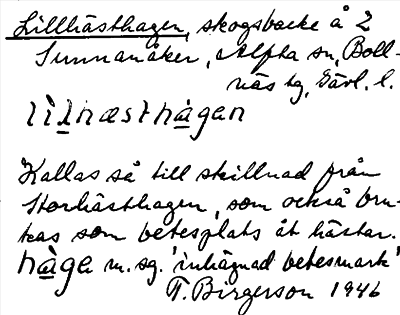 Lillhästhagen, skogsbacke å 2
Sunnanåker, Alfta sn, Boll-
näs tg, Gävl. l.
lìlhæsthàgan
Kallas så till skillnad från
Storhästhagen, som också bru-
kas som betesplats åt hästar.
hàga m. sg. 'inhägnad betesmark'
T. Birgerson 1946